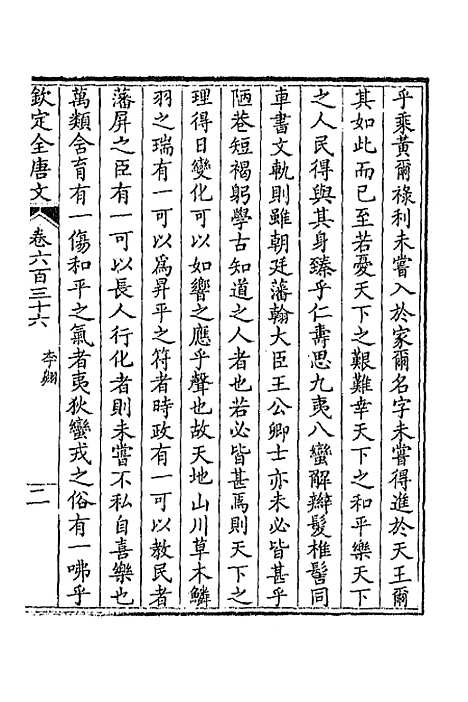 乎乘黃爾祿利未嘗入於家爾名字未嘗得進於天王爾
其如此而已至若憂天下之艱難幸天下之和平樂天下
之人民得與其身臻乎仁壽思九夷八蠻解辮髮椎髻同
車書文軌則雖朝廷藩翰大臣王公卿士亦未必皆甚乎
陋巷短褐躬學古知道之人者也若必皆甚焉則天下之
理得日變化可以如響之應乎聲也故天地山川草木鱗
羽之瑞有一可以爲昇平之符者時政有一可以教民者
藩屏之臣有一可以長人行化者則未嘗不私自喜樂也
萬類含育有一傷和平之氣者夷狄蠻戎之俗有一咈乎
欽定全唐文 卷六百三十六 李翺 二